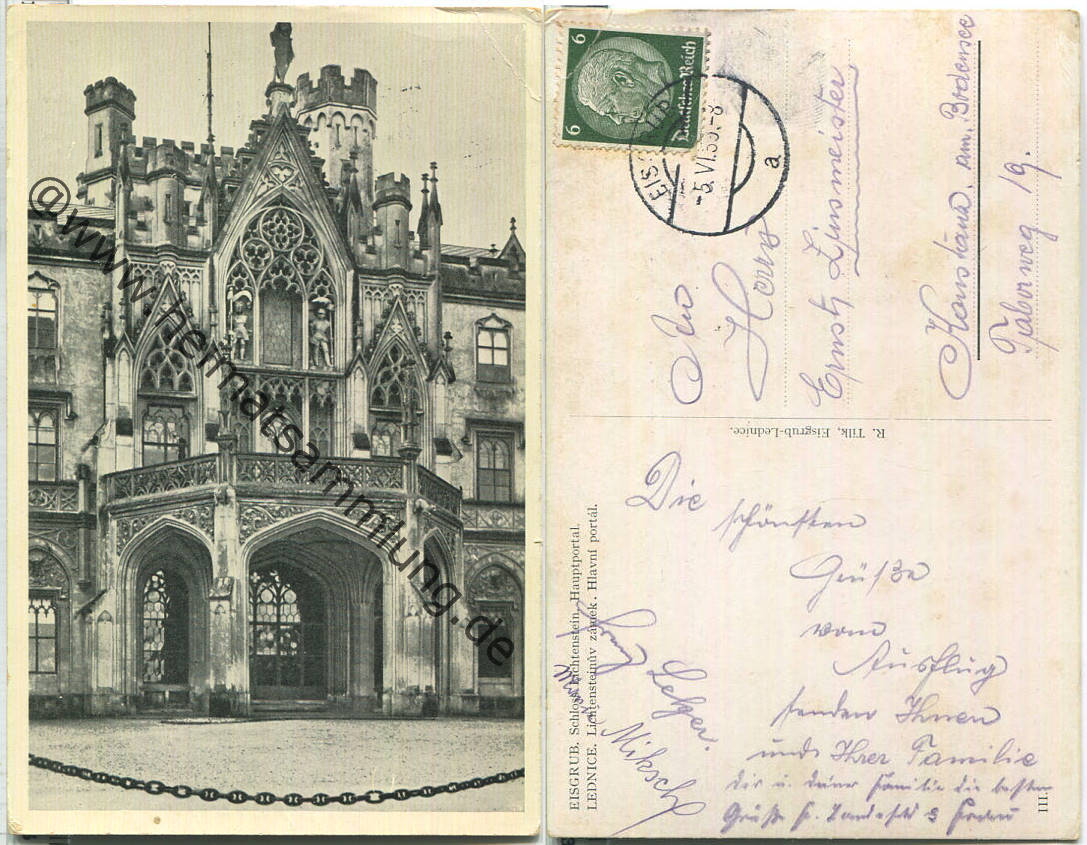 @www.heimatsammlung.de
6
6
Deutsches Reich
EIS
-5.VI.39.-8
a
Herrn
Ernst Linsmeister
Konstanz am Bodensee
Taborweg 19.
R. Tilk, Eisgrub-Lednice.
EISGRUB. Schloss Lichtenstein, Hauptportal.
LEDNICE. Lichtensteinův zámek. Hlavní portál.
III.
Die
schönsten
Grüße
vom
Ausflug
senden Ihnen
und Ihrer Familie
Dir u. deiner Familie die besten
Grüße
Franz
Miksch